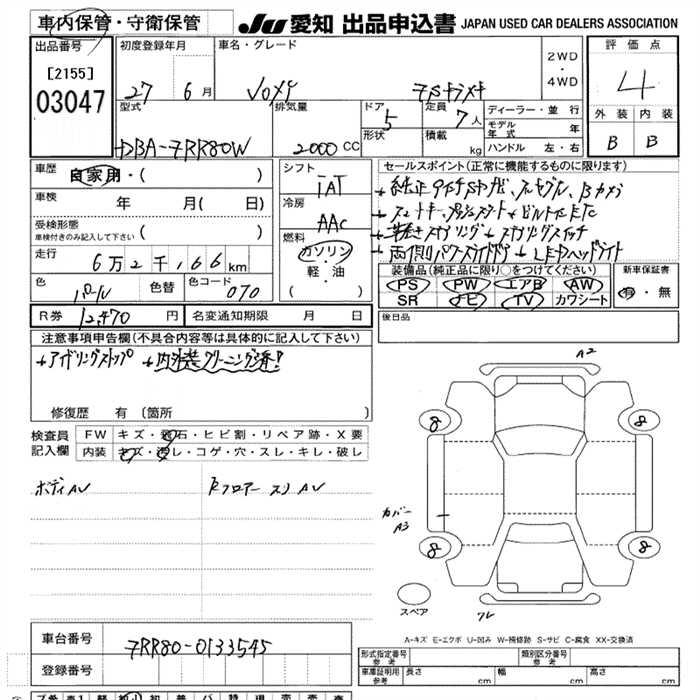 車内保管・守衛保管
JU 愛知 出品申込書 JAPAN USED CAR DEALERS ASSOCIATION
出品番号
[2155]
03047
初度登録年月
27 6 月
車名・グレード
2WD
・
4WD
評価点
4
外装 内装
B B
型式
DBA-ZRR80W
排気量
2000 CC
ドア
5
形状
定員
7 人
積載
kg
ディーラー・並 行
モデル年式 年
ハンドル 左・右
車歴
自家用・( )
車検 年 月( 日)
受検形態
車検付きのみ記入して下さい ( )
走行
6万2千166km
色
パール
色替
色コード
070
R券 12,470 円
名変通知期限 月 日
シフト
IAT
冷房
AAC
燃料
ガソリン
・
軽・油
( )
セールスポイント(正常に機能するものに限ります)
+両側パワースライドドア + LEDヘッドライト
装備品(純正品に限り○をつけてください)
PS PW エアB AW
SR ナビ TV カワシート
新車保証書
有・無
後日品
注意事項申告欄(不具合内容等は具体的に記入して下さい)
+アイドリングストップ +内外装クリーニング済!!
修復歴 有 (箇所 )
検査員記入欄
FW キズ・飛石・ヒビ割・リペア跡・X要
内装 キズ・汚レ・コゲ・穴・スレ・キレ・破レ
ボディAV
Rフロアースリ AV
A2
8
8
カバー
A3
8
8
スペア
ワレ
A-キズ E-エクボ U-凹み W-補修跡 S-サビ C-腐食 XX-交換済
車台番号 ZRR80-0133545
登録番号
形式指定番号
参考
類別区分番号
参考
車庫証明用
参考
長さ cm
幅 cm
高さ cm